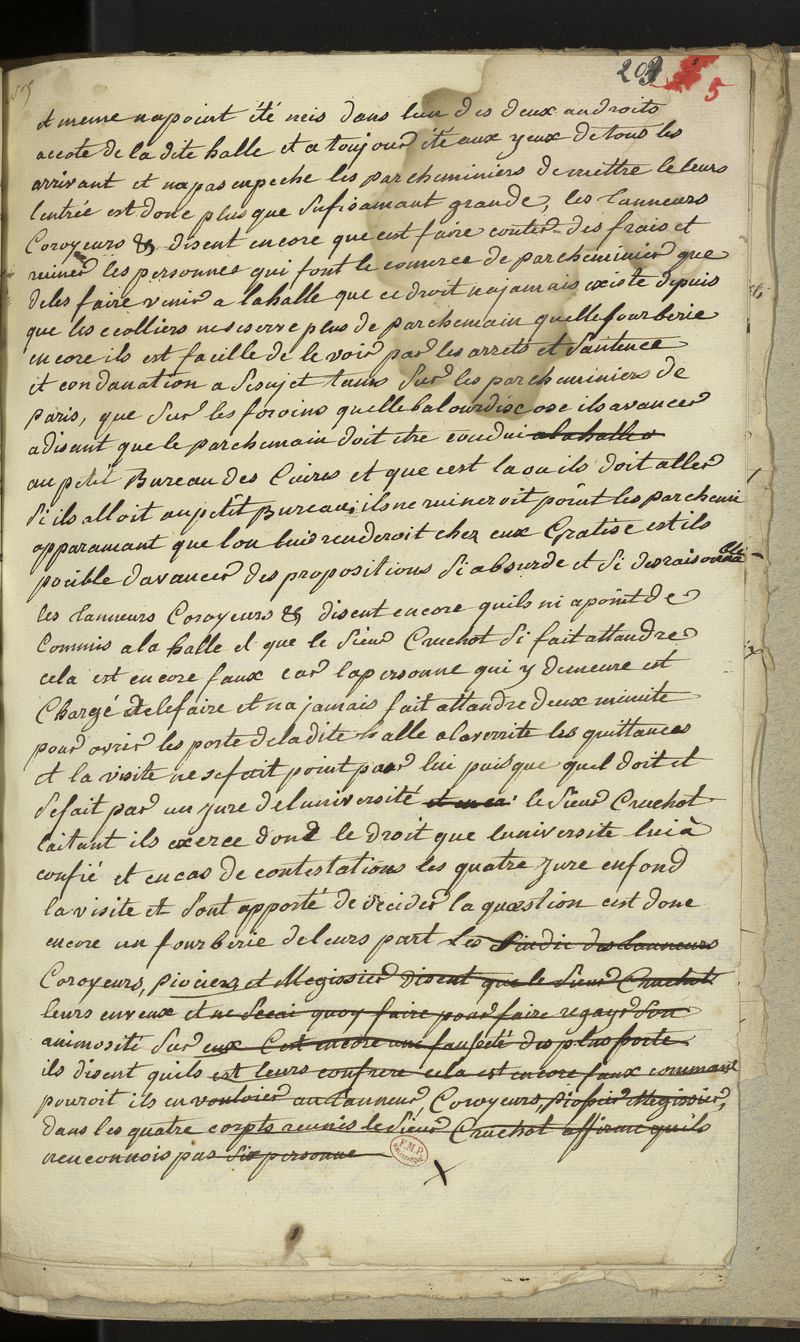 203 5
et meme napoint été mis dans lun des deux androits
accote de la dite halle et a toujour été aux yeux de tous les
arrivant et napas enpeche les parcheminiers de mettre le leurs
lentrée est donc plus que sufisamant grande, les Tanneurs
Coroyeurs & disent encore que cest faire couter des frais et
ruiner les personnes qui font le comerce de parcheminier que
deles faire venir a lahalle que ce droit najamais existe depuis
que les ecolliers ne se serve plus de parchemain quelle fourberie
encore ils est facille de le voir par les arrets et santence
et condanation a sesujet tans sur les parcheminiers de
Paris, que sur les foroins quelle balourdise ose ils avancer
adisant que le parchemain doit etre condui alahalle
au petit Bureau des Cuirs et que cest la ou ils doit aller
Si ils alloit au petit Bureau, ils ne ruineroit point les parchemi
apparamant que lon luis renderoit chez eux Gratise est ils
pocible davancer des propositions si absurde et si desraisonnable
les Tanneurs Coroyeurs & disent encore quils ni apoint de
Commis a la halle et que le Sieur Cruchot si fait attandre
cela est encore faux car lapersonne qui y demeure est
Chargé de le faire et najamais fait attandre deux minute
pour ovrir les porte de ladite halle alaverite les quittances
et la visite ne se fait point par lui puisque quel doit et
se fait par un jure de luniversité et en ca le Sieur Cruchot
laitant ils exerce donc le droit que luniversite lui à
confié et en cas de contestations les quatre jure enfond
la visite et sont apporté de decider la quæstion cest donc
encore un fourberie de leurs part les Sindic des Tanneurs
Coroyeurs, et Megissier disent que le Sieur Cruchot
leurs enveux et ne scai quoy faire pour faire regayr son
animosité sur eux Cest encore une fauseté des plus forte
ils disent quils est leurs confrere cela est encore faux commant
pouroit ils en vouloier au Tanneur, Coroyeurs, Megissier,
dans les quatre corpts reunis le Sieur Cruchot affirme quils
nen connois pas six personne